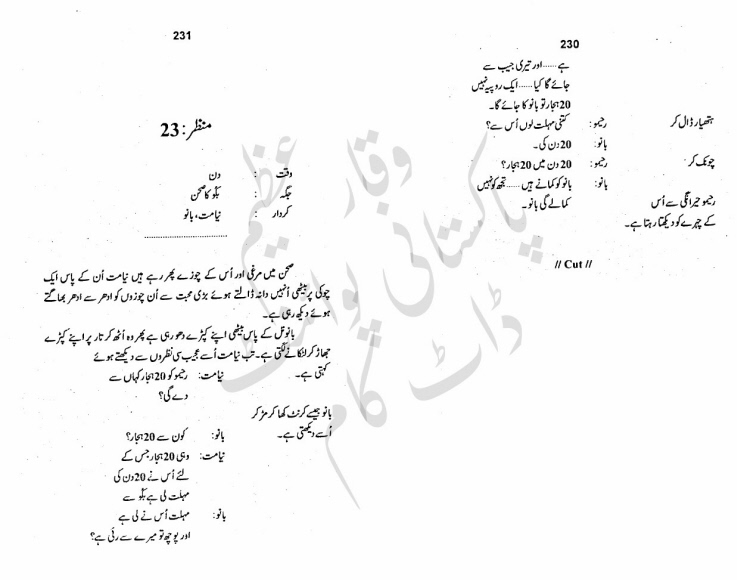 230
ہے......اور تیری جیب سے
جائے گا کیا......ایک روپیہ نہیں
20 ہجار تو بانو کا جائے گا۔
ہتھیار ڈال کر رحیمو: کتنی مہلت لوں اُس سے؟
بانو: 20 دن کی۔
چونک کر رحیمو: 20 دن میں 20 ہجار؟
بانو: بانو کو کمانے ہیں......تجھ کو نہیں
کمالے گی بانو۔
رحیمو حیرانگی سے اُس
کے چہرے کو دیکھتا رہتا ہے۔
// Cut //
231
منظر: 23
وقت : دن
جگہ : بگو کا صحن
کردار : نیامت، بانو
صحن میں مرغی اور اُس کے چوزے پھر رہے ہیں نیامت اُن کے پاس ایک
چوکی پر بیٹھی اُنہیں دانہ ڈالتے ہوئے بڑی محبت سے اُن چوزوں کو ادھر سے ادھر بھاگتے
ہوئے دیکھ رہی ہے۔
بانو نل کے پاس بیٹھی اپنے کپڑے دھو رہی ہے پھر وہ اُٹھ کر تار پر اپنے کپڑے
جھاڑ کر لٹکانے لگتی ہے۔ تب نیامت اُسے عجیب سی نظروں سے دیکھتے ہوئے
کہتی ہے۔ نیامت: رحیمو کو 20 ہجار کہاں سے
دے گی؟
بانو جیسے کرنٹ کھا کر مڑ کر
اُسے دیکھتی ہے۔ بانو: کون سے 20 ہجار؟
نیامت: وہی 20 ہجار جس کے
لئے اُس نے 20 دن کی
مہلت لی ہے بگو سے
بانو: مہلت اُس نے لی ہے
اور پوچھ تو میرے سے رئی ہے؟
وقار عظیم
پاکستانی پوائنٹ
ڈاٹ کام